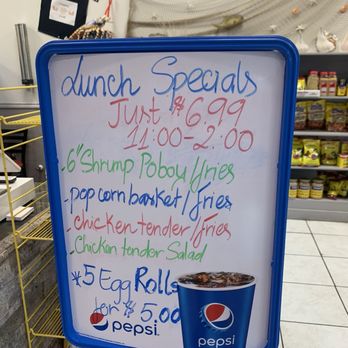 Lunch Specials
Just $6.99
11:00-2:00
-6" Shrump Poboy/fries
-popcorn basket/fries
-chicken tender/fries
-Chicken tender Salad
*5 Egg Rolls
for $5.00
pepsi
pepsi